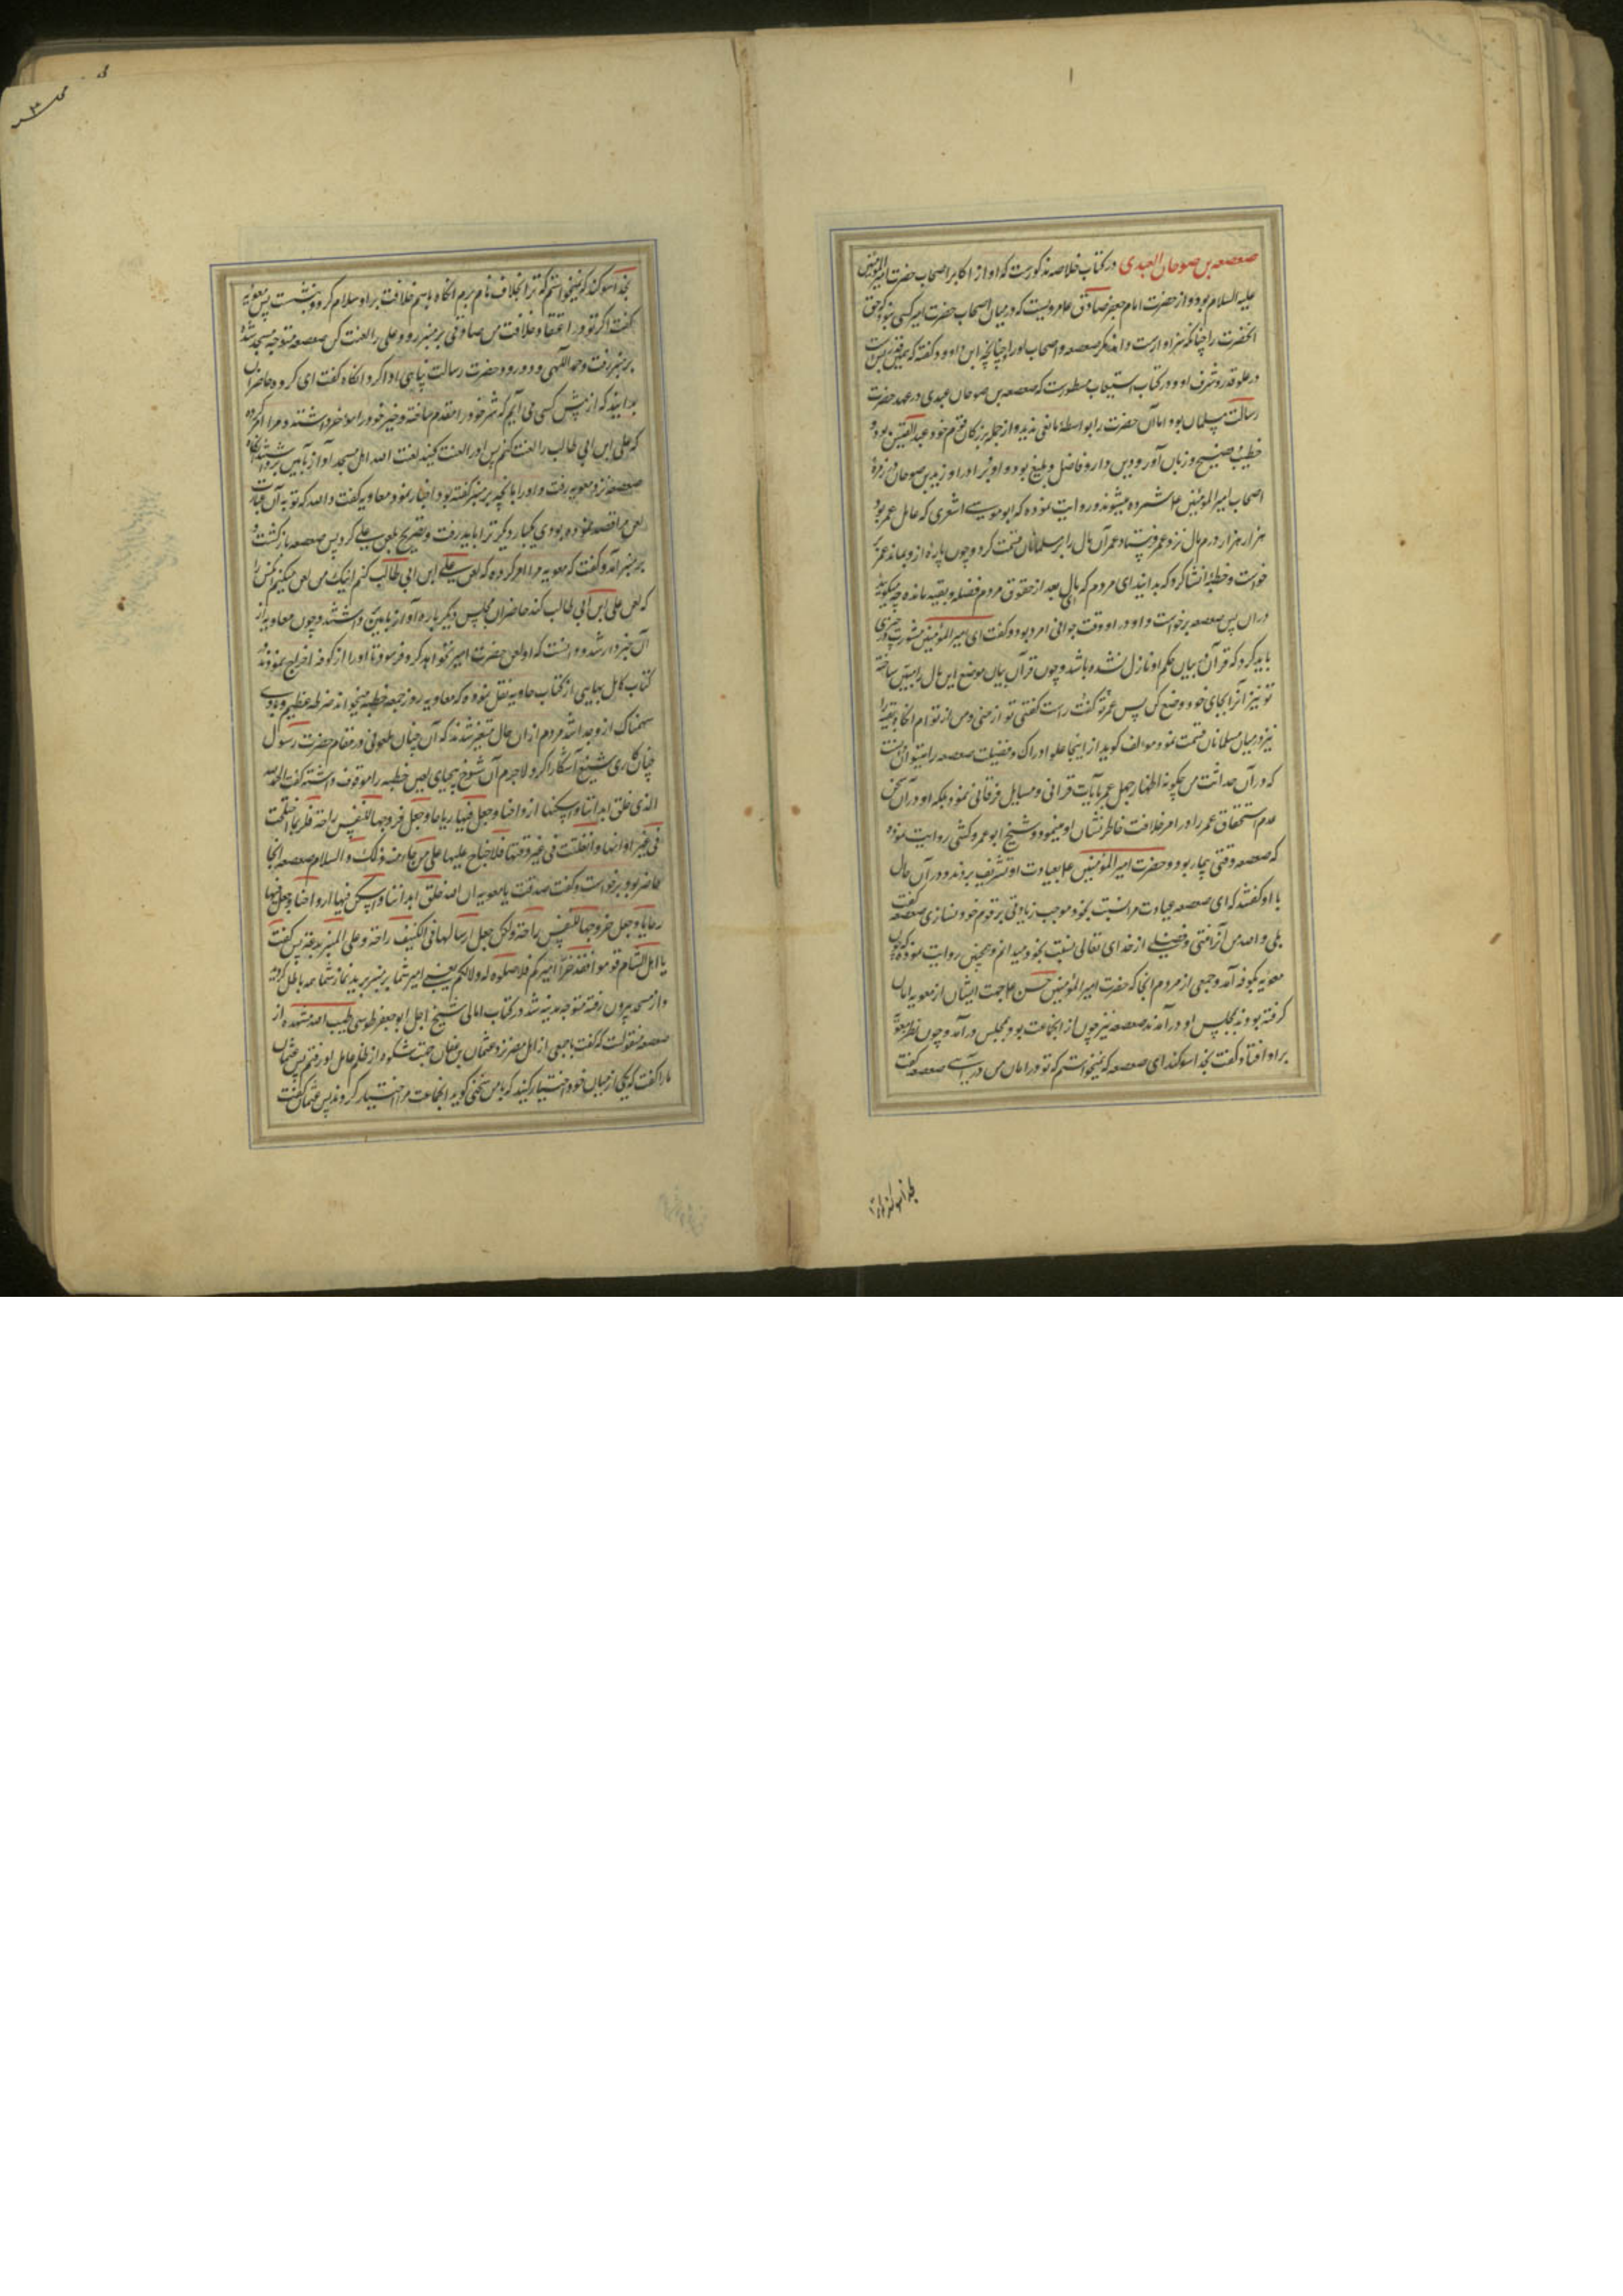 صعصعه بن صوحان العبدی در کتاب خلاصه مذکورست که او از اکابر اصحاب حضرت امیر المؤمنین
علیه السلام بود و از حضرت امام جعفر صادق مرویست که در میان اصحاب حضرت امیر کسی نبود که حق
آنحضرت را چنانکه سزاوارست داند مگر صعصعه و اصحاب او را چنانچه ابن داوود گفته که همین قدر بس است
در علو قدر و شرف او و در کتاب استیعاب مسطورست که صعصعه بن صوحان عبدی در عهد حضرت
رسالت مسلمان بود اما آن حضرت را بواسطه مانعی ندید و از جمله بزرگان قوم خود عبد القیس بود و
خطیب فصیح و زبان آور و دین دار و فاضل و بلیغ بود و او و برادر او زید بن صوحان در زمره
اصحاب امیر المؤمنین شمرده میشوند و روایت نموده که ابو موسی اشعری که عامل عمر بود
هزار هزار درم مال نزد عمر فرستاد عمر آن مال را بر مسلمانان قسمت کرد و چون پاره از و بماند عمر بر
خواست و خطبه انشا کرد که بدانید ای مردم که مالی بعد از حقوق مردم فضله و بقیه مانده چه میگویید
در آن پس صعصعه برخواست و او در او وقت جوانی امرد بود و گفت ای امیر المؤمنین مشورت در چیزی
باید کرد که قرآن در بیان حکم او نازل نشده باشد و چون قرآن بیان موضع این مال را مبین ساخته
تو نیز آنرا بجای خود وضع کن پس عمر گفت راست گفتی تو از منی و من از تو ام آنگاه بقیه را
نیز در میان مسلمانان قسمت نمود مؤلف گوید از اینجا علو ادراک و فضیلت صعصعه را میتوان دانست
که در آن حداثت سن چگونه اظهار جهل عمر بآیات قرآنی و مسایل فرقانی نموده بلکه او در آن سخن
عدم استحقاق عمر را در امر خلافت خاطر نشان او مینمود و شیخ ابو عمرو کشی روایت نموده
که صعصعه وقتی بیمار بود و حضرت امیر المؤمنین بعیادت او تشریف بردند و در آن حال
با او گفتند که ای صعصعه عیادت مرا نسبت بخود موجب زیادتی بر قوم خود نسازی صعصعه گفت
بلی والله من آنرا منتی و فضیلی از خدای تعالی نسبت بخود میدانم و همچنین روایت نموده که چون
معویه بکوفه آمد و جمعی از مردم آنجا که حضرت امیر المؤمنین حسن جهت ایشان از معویه امان
گرفته بود به مجلس او در آمدند صعصعه نیز چون از آنجماعت بود بمجلس در آمد و چون نظر معویه
بر او افتاد گفت بخدا سوگند ای صعصعه که نمیخواستم که تو در امان من در آیی صعصعه گفت
بخدا سوگند که نمیخواستم که ترا بخلاف نام برم آنگاه باسم خلافت بر او سلام کرد و بنشست پس معویه
گفت اگر تو در اعتقاد خلافت من صادقی بر منبر رو و علی را لعنت کن صعصعه متوجه مسجد شده
بر منبر رفت و حمد الهی و درود حضرت رسالت پناهی ادا کرد آنگاه گفت ای گروه حاضران
بدانید که از پیش کسی می آیم که شر خود را مقدم ساخته و خیر خود را مؤخر داشته و مرا امر کرده
که علی ابن ابی طالب را لعنت کنم پس او را لعنت کنید لعنت الله اهل مسجد آواز بآمین برداشتند آنگاه
صعصعه نزد معویه رفت و او را بآنچه بر منبر گفته بود اخبار نمود معاویه گفت والله که تو به آن عبارت
لعن مرا قصد نموده بودی یکبار دیگر ترا باید رفت و تصریح بلعن علی کرد پس صعصعه بازگشت و
بر منبر آمد و گفت که معویه مرا امر کرده که لعن علی ابن ابی طالب کنم اینک من لعن میکنم آنکس را
که لعن علی ابن ابی طالب کند حاضران مجلس دیگر باره آواز بآمین برداشتند و چون معاویه از
آن خبردار شد و دانست که او لعن حضرت امیر نخواهد کرد فرمود تا او را از کوفه اخراج نمودند و در
کتاب کامل بهایی از کتاب حاویه نقل نموده که معاویه روز جمعه خطبه میخواند ضرطه عظیم و بادی
سهمناک از و جدا شد مردم از آن حال متغیر شدند که آن چنان ملعونی در مقام حضرت رسول
چنان کاری شنیع آشکارا کرد لاجرم آن شوخ بیحیای لعین خطبه را موقوف داشته گفت الحمد لله
الذی خلق ابداننا و اسکنها ارواحنا و جعل فیها ریاحا و جعل خروجها للنفس راحة فلربما اختلجت
فی غیر اوانها و انفلتت فی غیر وقتها فلا جناح علیها علی من جاء منه ذلک والسلام صعصعه آنجا
حاضر بود برخواست و گفت صدقت یا معویه ان الله خلق ابداننا و اسکن فیها ارواحنا و جعل فیها
ریاحا و جعل خروجها للنفس راحة ولکن جعل ارسالها فی الکنیف راحة و علی المنبر بدعة پس گفت
یا اهل الشام قوموا فقد خرأ امیرکم فلا صلوة له و لا لکم یعنی امیر شما بر منبر برید نماز شما همه باطل گردید
و از مسجد بیرون رفته متوجه مدینه شد در کتاب امالی شیخ اجل ابو جعفر طوسی طیب الله مشهده از
صعصعه منقولست که گفت با جمعی از اهل مصر نزد عثمان بن عفان جهت شکوه از ظلم عامل او رفتم پس عثمان
ما را گفت که یکی از میان خود اختیار کنید که با من سخن گوید آنجماعت مرا اختیار کردند پس عثمان گفت